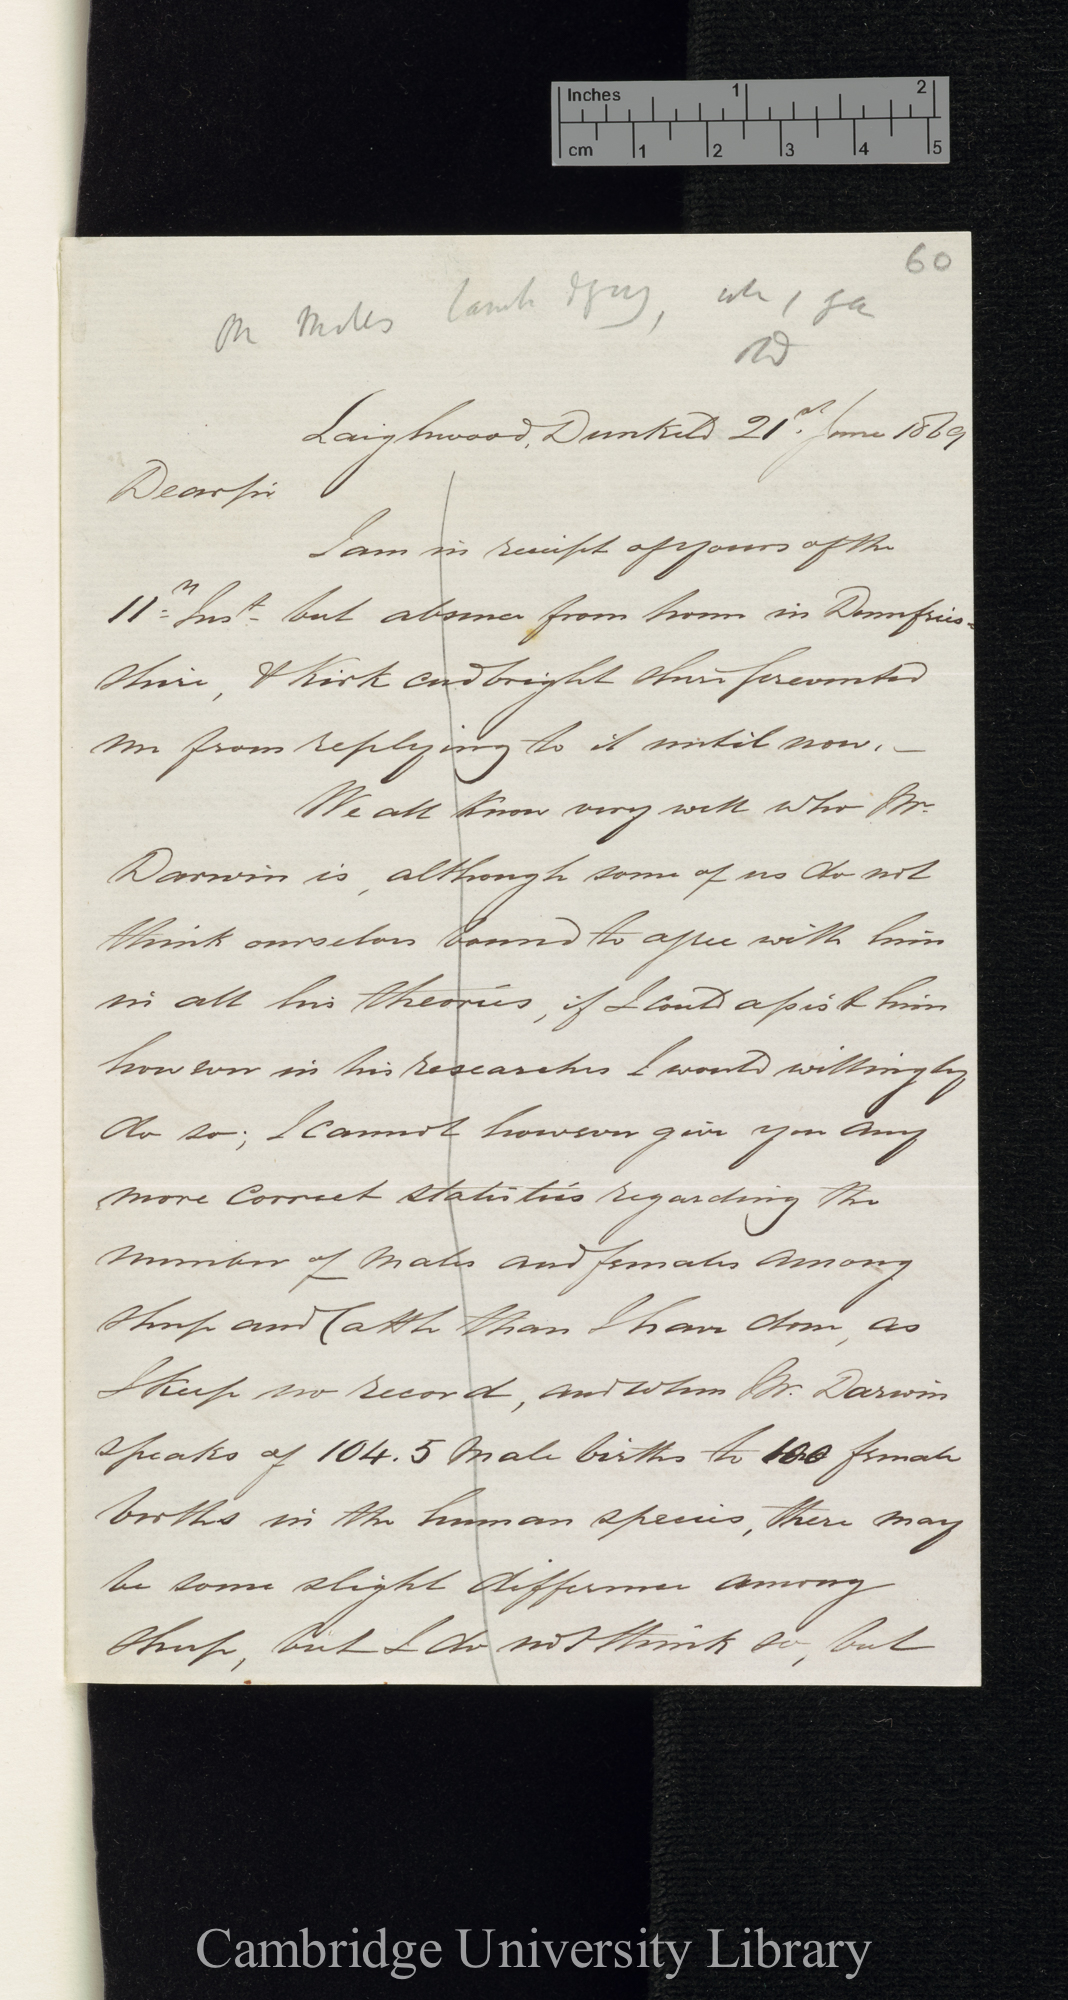 Inches 1 2
cm 1 2 3 4 5
60
on Males lamb dying, when
old
Laighwood, Dunkeld 21st. June 1869
Dear Sir
I am in receipt of yours of the
11th Inst. but absence from home in Dumfries-
shire, & Kirkcudbright shire prevented
me from replying to it until now. —
We all know very well who Mr.
Darwin is, although some of us do not
think ourselves bound to agree with him
in all his theories, if I could assist him
however in his researches I would willingly
do so; I cannot however give you any
more correct statistics regarding the
number of males and females among
sheep and Cattle than I have done, as
I keep no record, and when Mr. Darwin
speaks of 104.5 male births to 100 female
births in the human species, there may
be some slight difference among
sheep, but I do not think so, but
Cambridge University Library